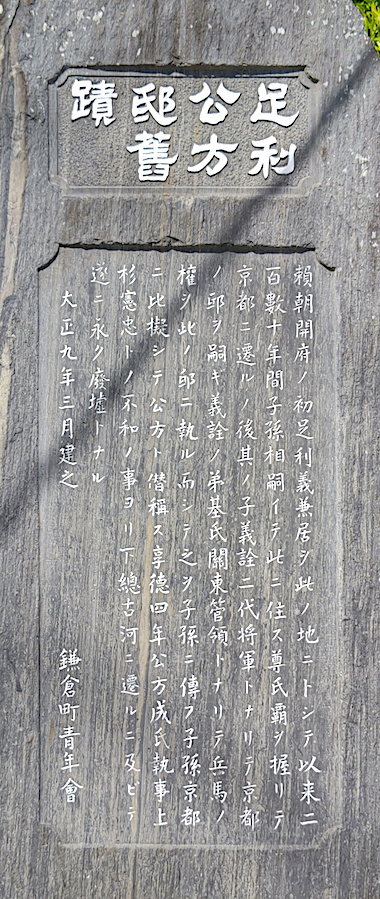 足利
公方
邸舊
蹟
賴朝開府ノ初足利義兼居ヲ此ノ地ニ卜シテ以来二
百數十年間子孫相嗣イデ此ニ住ス尊氏覇ヲ握リテ
京都ニ遷ルノ後其ノ子義詮二代將軍トナリテ京都
ノ邸ヲ嗣ギ義詮ノ弟基氏關東管領トナリテ兵馬ノ
權ヲ此ノ邸ニ執ル而シテ之ヲ子孫ニ傳フ子孫京都
ニ比擬シテ公方ト僭稱ス享德四年公方成氏執事上
杉憲忠トノ不和ノ事ヨリ下總古河ニ遷ルニ及ビテ
遂ニ永ク廢墟トナル
大正九年三月建之 鎌倉町青年會